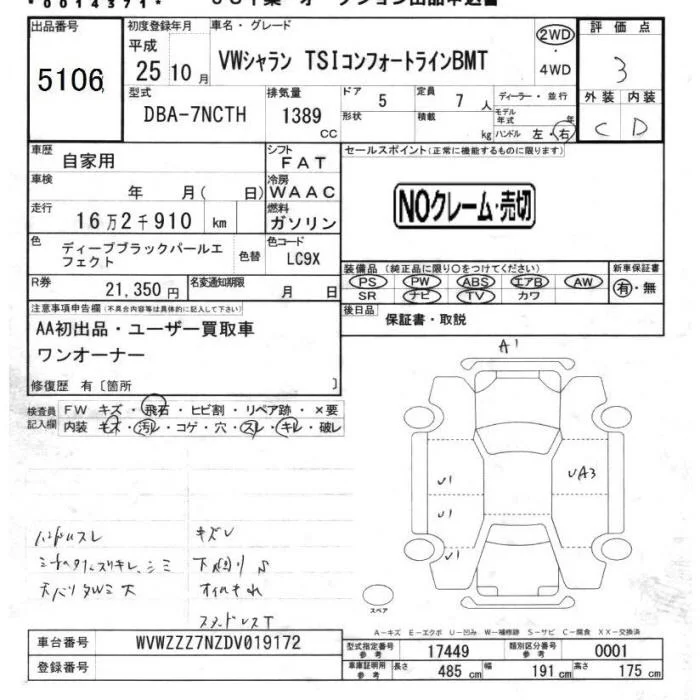 出品番号
5106
初度登録年月
平成
25 10 月
車名・グレード
VWシャラン TSIコンフォートラインBMT
2WD
4WD
評価点
3
外装 内装
C D
型式
DBA-7NCTH
排気量
1389
CC
ドア
5
定員
7 人
形状
積載
kg
ディーラー・並行
モデル年式
年
ハンドル 左・右
車歴
自家用
シフト
FAT
車検
年 月( 日)
冷房
WAAC
走行
16万2千910 km
燃料
ガソリン
色
ディープブラックパールエフェクト
色替
色コード
LC9X
R券
21,350 円
名変通知期限
月 日
セールスポイント(正常に機能するものに限ります)
NOクレーム・売切
装備品 (純正品に限り○をつけてください)
PS PW ABS エアB AW
SR ナビ TV カワ
新車保証書
有・無
後日品
保証書・取説
注意事項申告欄(不具合内容等は具体的に記入して下さい)
AA初出品・ユーザー買取車
ワンオーナー
修復歴 有〔箇所 〕
検査員記入欄
FW キズ・飛石・ヒビ割・リペア跡・×要
内装 キズ・汚レ・コゲ・穴・スレ・キレ・破レ
ハンドルスレ
キズレ
A1
U1
U1
U1
UA3
スペア
A-キズ E-エクボ U-凹み W-補修跡 S-サビ C-腐食 XX-交換済
車台番号
WVWZZZ7NZDV019172
登録番号
型式指定番号
参考
17449
類別区分番号
参考
0001
車庫証明用
参考
長さ 485 cm
幅 191 cm
高さ 175 cm